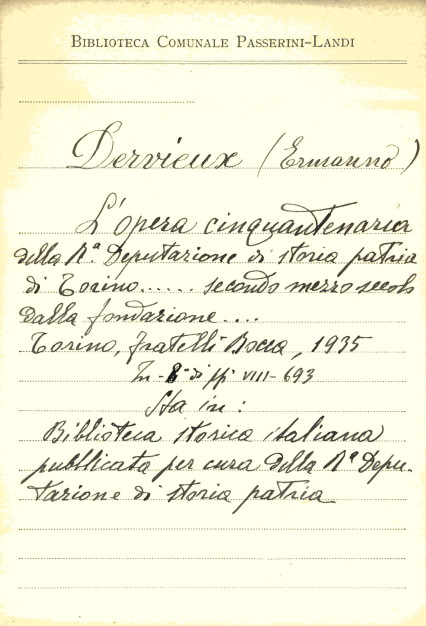 BIBLIOTECA COMUNALE PASSERINI-LANDI
Dervieux (Ermanno)
L'opera cinquantenaria
della Rª. Deputazione di storia patria
di Torino...... secondo mezzo secolo
dalla fondazione....
Torino, fratelli Bocca, 1935
In-8º di pp VIII-693
Sta in:
Biblioteca storica italiana
pubblicata per cura della Rª Depu-
tazione di storia patria